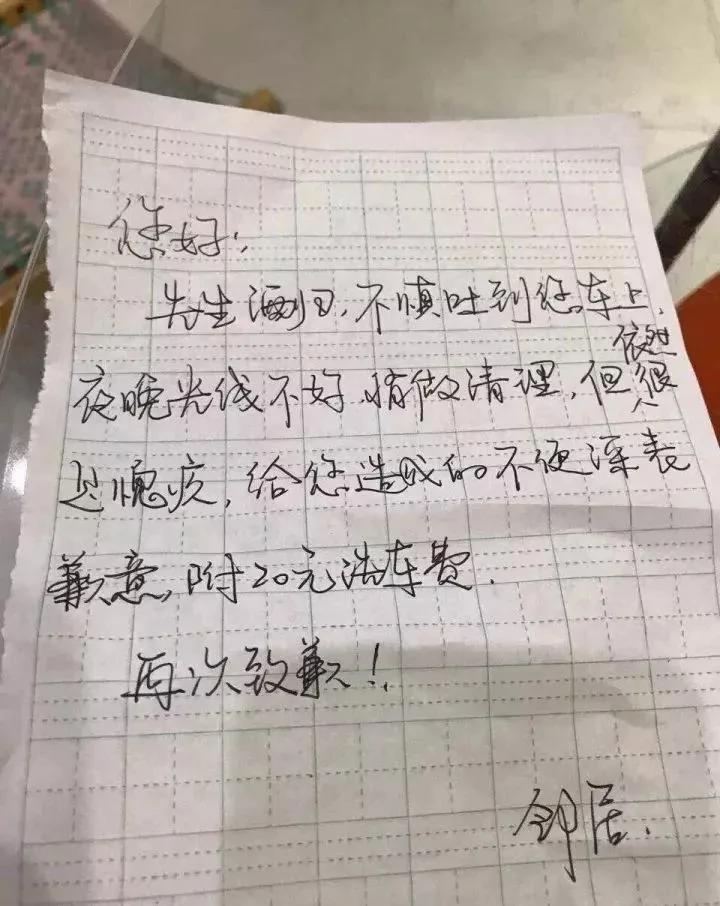 您好:
先生酒归,不慎吐到您车上,
夜晚光线不好,稍做清理,但依然很
是愧疚,给您造成的不便深表
歉意,附20元洗车费.
再次致歉!
邻居.